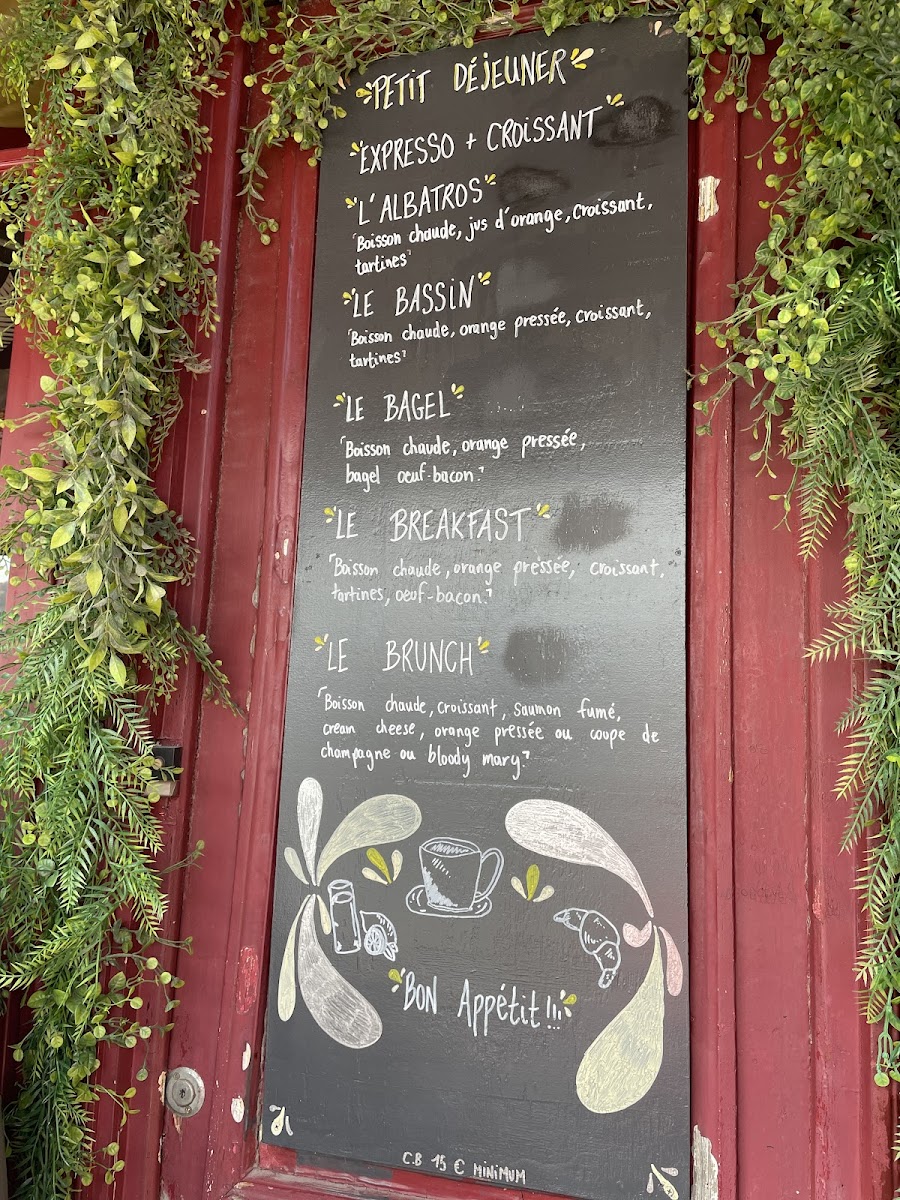 PETIT DÉJEUNER
EXPRESSO + CROISSANT
L'ALBATROS
"Boisson chaude, jus d'orange, croissant,
tartines"
LE BASSIN
"Boisson chaude, orange pressée, croissant,
tartines"
LE BAGEL
"Boisson chaude, orange pressée,
bagel oeuf-bacon."
LE BREAKFAST
"Boisson chaude, orange pressée, croissant,
tartines, oeuf-bacon."
LE BRUNCH
"Boisson chaude, croissant, saumon fumé,
cream cheese, orange pressée ou coupe de
champagne ou bloody mary"
BON Appétit!!!
C.B 15 € MINIMUM